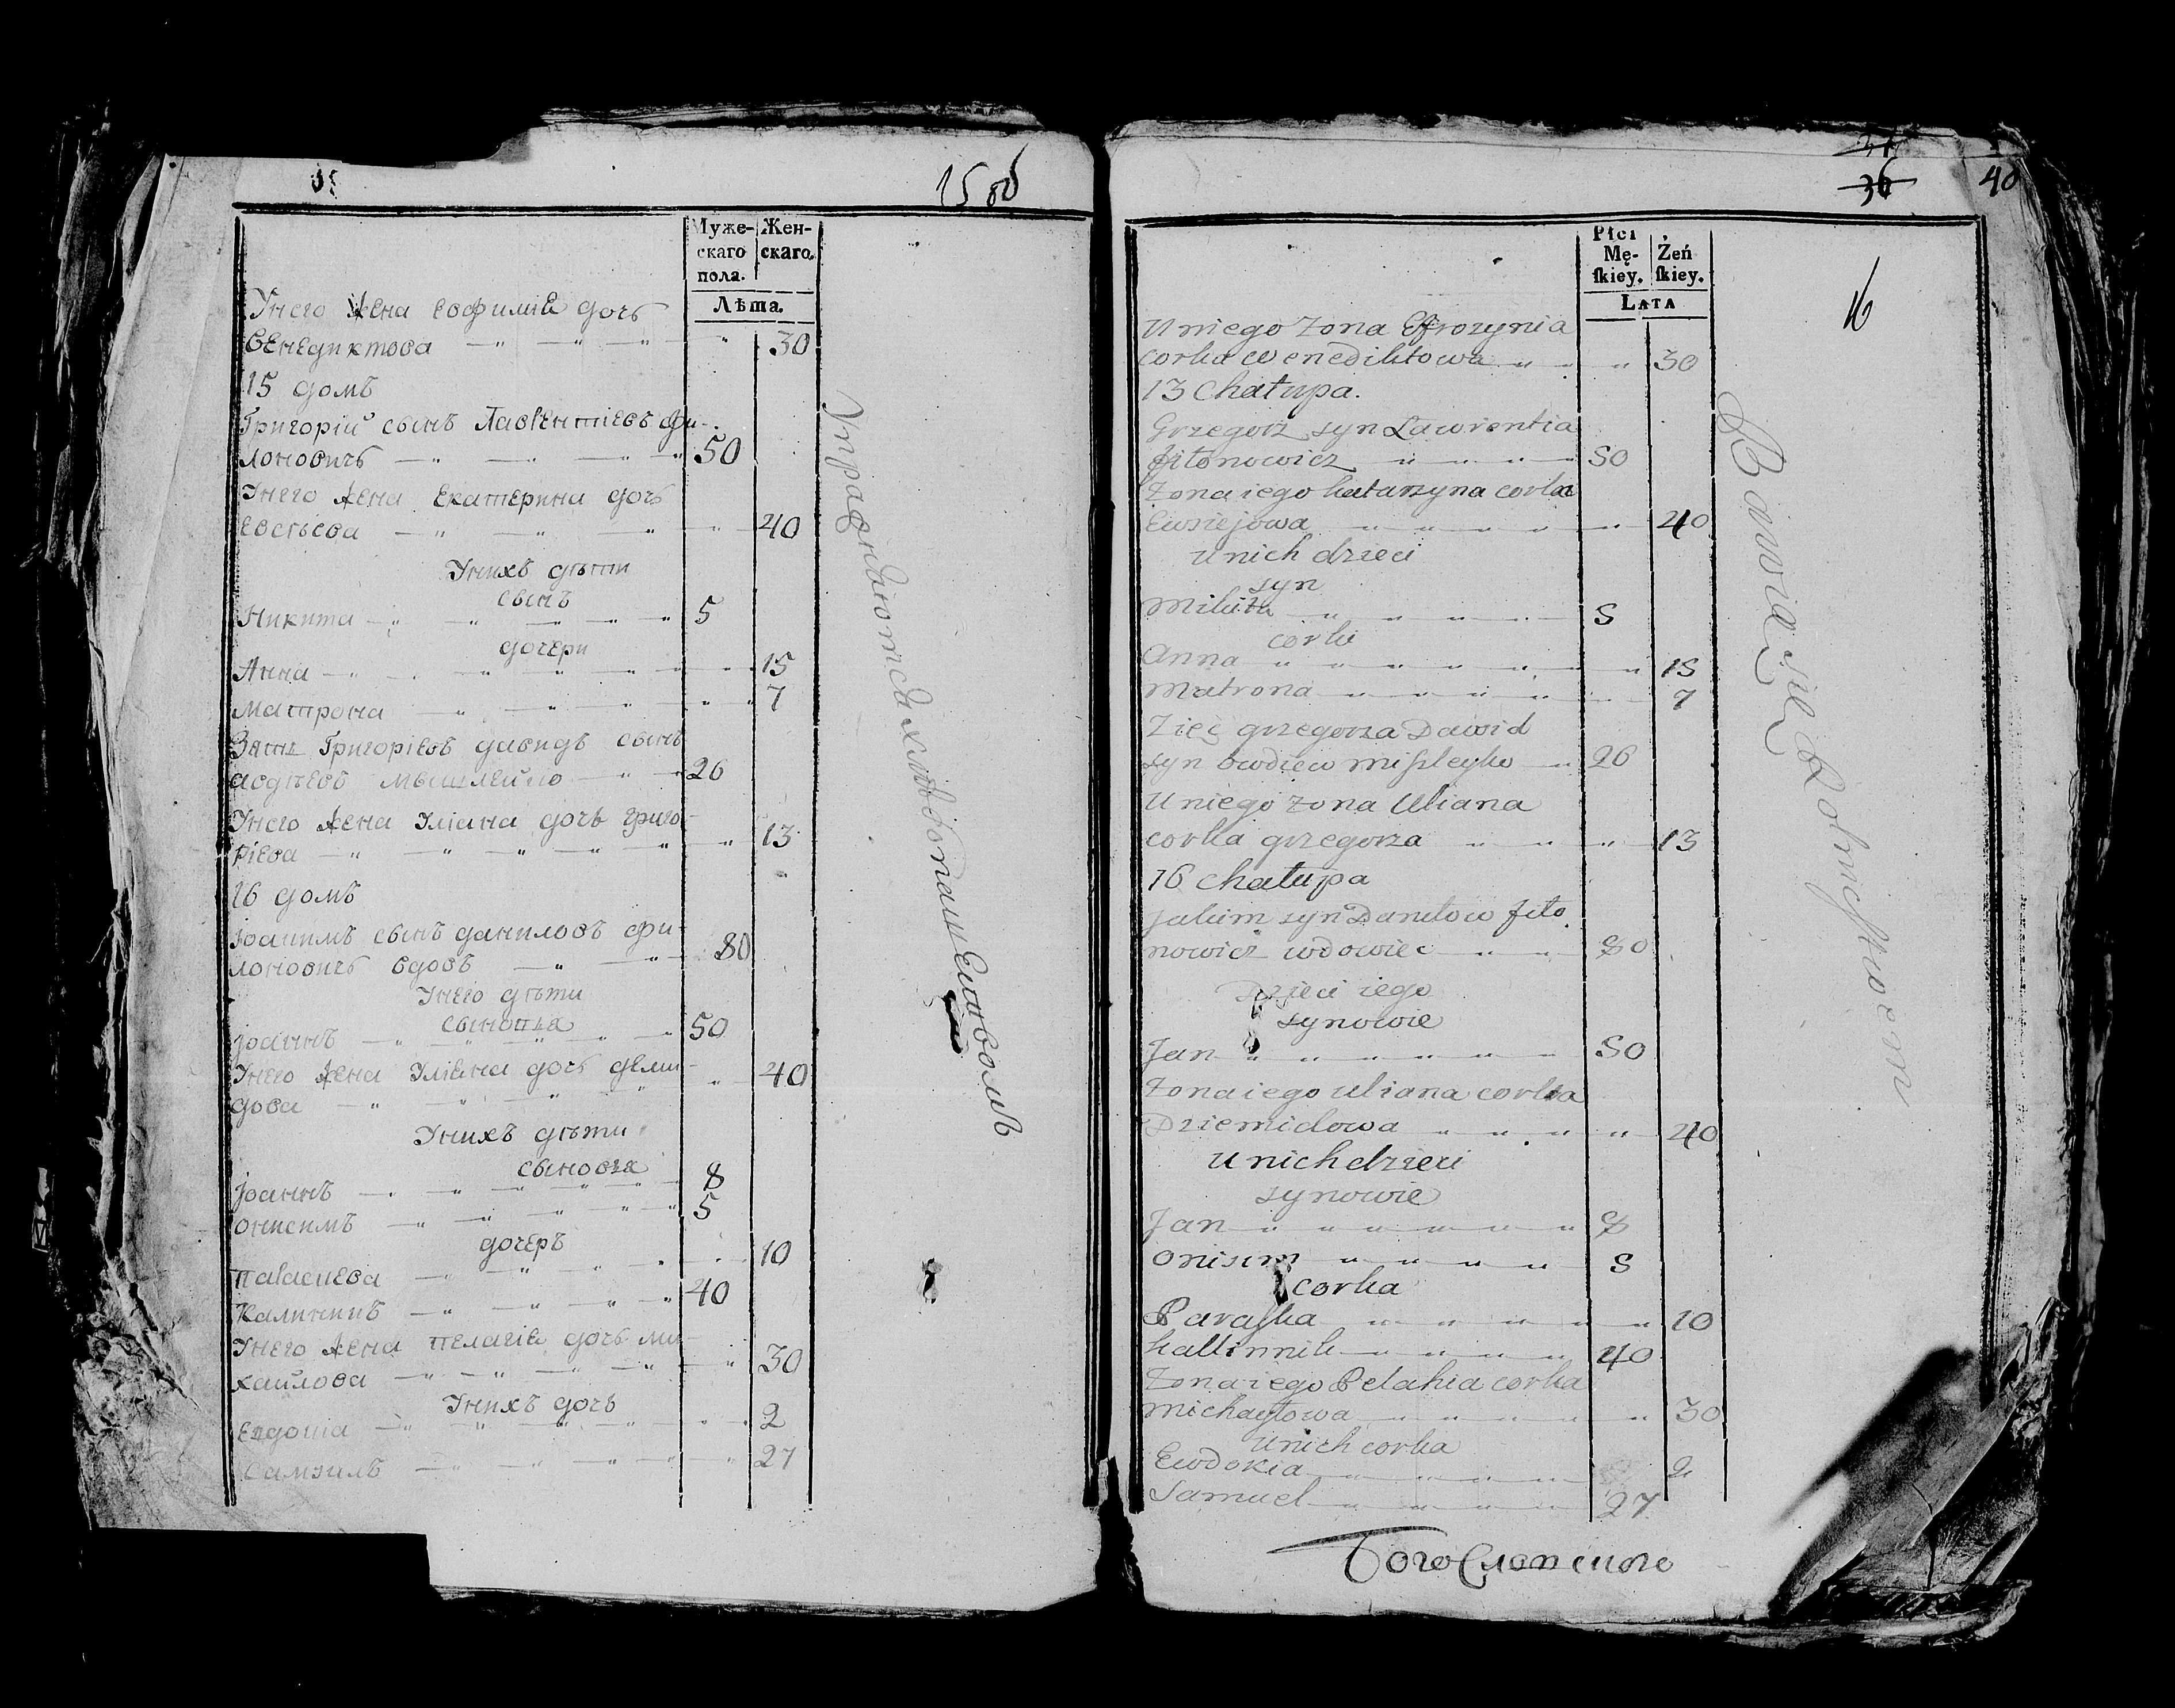 Муже-
скаго
пола.
Жен-
скаго.
Лѣта.
Унего жена Евфимія дочь
Венедиктова 30
15 домъ
Григорій сынъ Лаврентіевъ Фи-
лоновичь 50
Унего жена Екатерина дочь
Евсѣева 40
Унихъ дѣти
сынъ
Никита 5
дочери
Анна 15
Матрона 7
Зять Григоріевъ Давидъ сынъ
Авдѣевъ Мышлейко 26
Унего жена Уліана дочь Григо-
ріева 13
16 домъ
Іоакимъ сынъ Даниловъ Фи-
лоновичъ вдовъ 80
Унего дѣти
сыновья
Іоаннъ 50
Унего жена Уліана дочь Деми-
дова 40
Унихъ дѣти
сыновья
Іоаннъ 8
Онисимъ 5
дочеръ
Параскева 10
Калиникъ 40
Унего жена Пелагія дочь Ми-
хайлова 30
Унихъ дочь
Евдокia 2
Самуилъ 27
Упражняются хлѣбопашествомъ
36
40
Płci
Mę-
skiey.
Żeń
skiey.
Lata
16
U niego Zona Efrozynia
corka Wenediktowa 30
13 Chałupa.
Grzegorz syn Lawrentia
Fiłonowicz 50
Zona iego Katarzyna corka
Ewsiejowa 40
U nich dzieci
syn
Mikita 5
corki
Anna 15
Matrona 7
Zięc Grzegorza Dawid
syn Owdiew Miszleyko 26
U niego Zona Uliana
corka Grzegorza 13
16 Chałupa
Jakim syn Daniłow Fiło
nowicz wdowiec 80
Dzieci iego
synowie
Jan 50
Zona iego Uliana corka
Dziemidowa 40
U nich dzieci
synowie
Jan 8
Onisim 5
corka
Paraska 10
Kallinnik 40
Zona iego Pelahia corka
Michayłowa 30
U nich corka
Ewdokia 2
Samuel 27
Bawią się Rolnictwem
Богословского